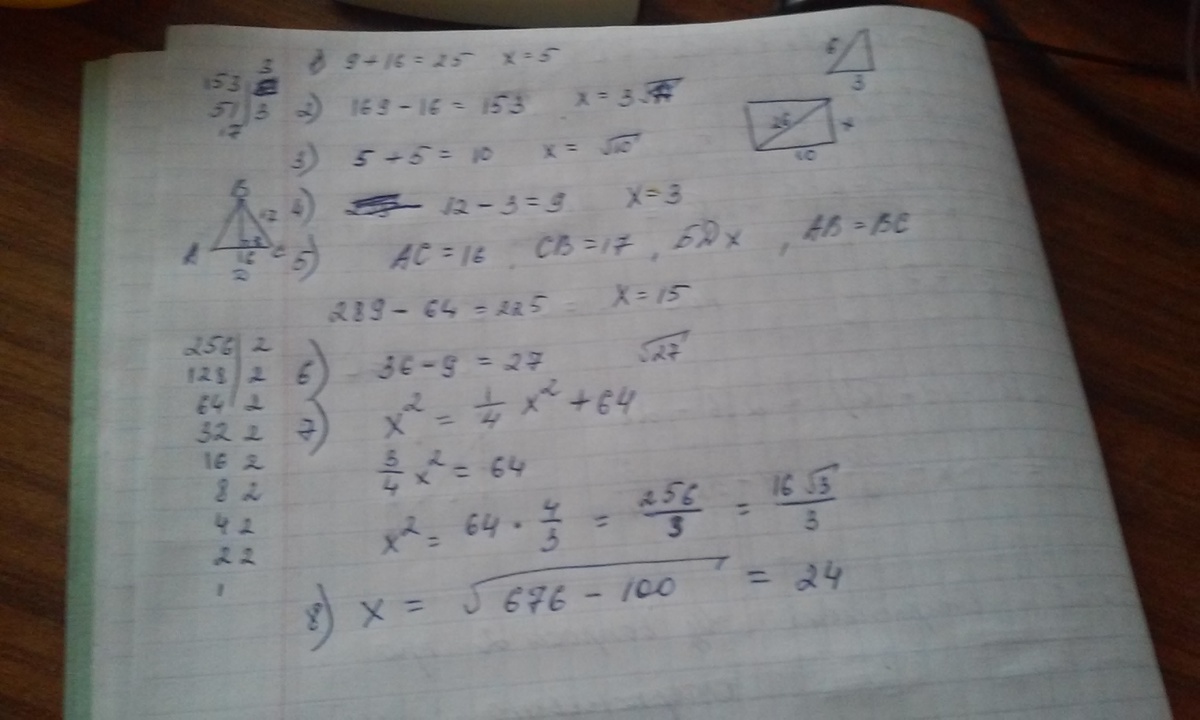 1) 9 + 16 = 25 x = 5
153 | 3
51 | 3
17
2) 169 - 16 = 153 x = 3√17
3) 5 + 5 = 10 x = √10
4) 12 - 3 = 9 x = 3
5) AC = 16, CB = 17, БД x, AB = BC
289 - 64 = 225 x = 15
6) 36 - 9 = 27 √27
7) x² = 1/4 x² + 64
3/4 x² = 64
x² = 64 · 4/3 = 256/3 = 16√3/3
8) x = √676 - 100 = 24
256 | 2
128 | 2
64 | 2
32 2
16 2
8 2
4 2
2 2
1
6
3
26
x
10
B
17
A
8
C
16
D